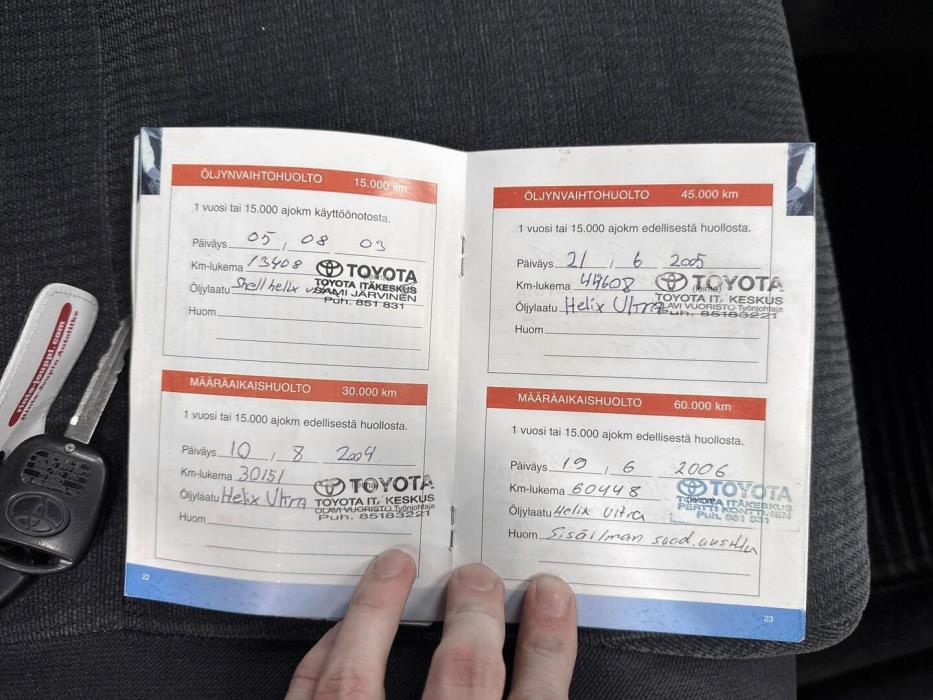 ÖLJYNVAIHTOHUOLTO 15.000 km
1 vuosi tai 15.000 ajokm käyttöönotosta.
Päiväys 05, 08 03
Km-lukema 13408
TOYOTA
TOYOTA ITÄKESKUS
Öljylaatu Shell helix
SAMI JÄRVINEN
Puh. 851 831
Huom
MÄÄRÄAIKAISHUOLTO 30.000 km
1 vuosi tai 15.000 ajokm edellisestä huollosta.
Päiväys 10, 8 2004
Km-lukema 30151
TOYOTA
Öljylaatu Helix Ultra
TOYOTA IT. KESKUS
OLAVI VUORISTO Työnjohtaja
Puh. 85183221
Huom
22
ÖLJYNVAIHTOHUOLTO 45.000 km
1 vuosi tai 15.000 ajokm edellisestä huollosta.
Päiväys 21, 6 2005
Km-lukema 44608
(leima)
TOYOTA
Öljylaatu Helix Ultra
TOYOTA IT. KESKUS
OLAVI VUORISTO Työnjohtaja
Puh. 85183221
Huom
MÄÄRÄAIKAISHUOLTO 60.000 km
1 vuosi tai 15.000 ajokm edellisestä huollosta.
Päiväys 19, 6 2006
Km-lukema 60448
TOYOTA
Öljylaatu Helix Ultra
TOYOTA ITÄKESKUS
PERTTI KONTTINEN
Puh. 851 831
Huom Sisäilman suod.
23